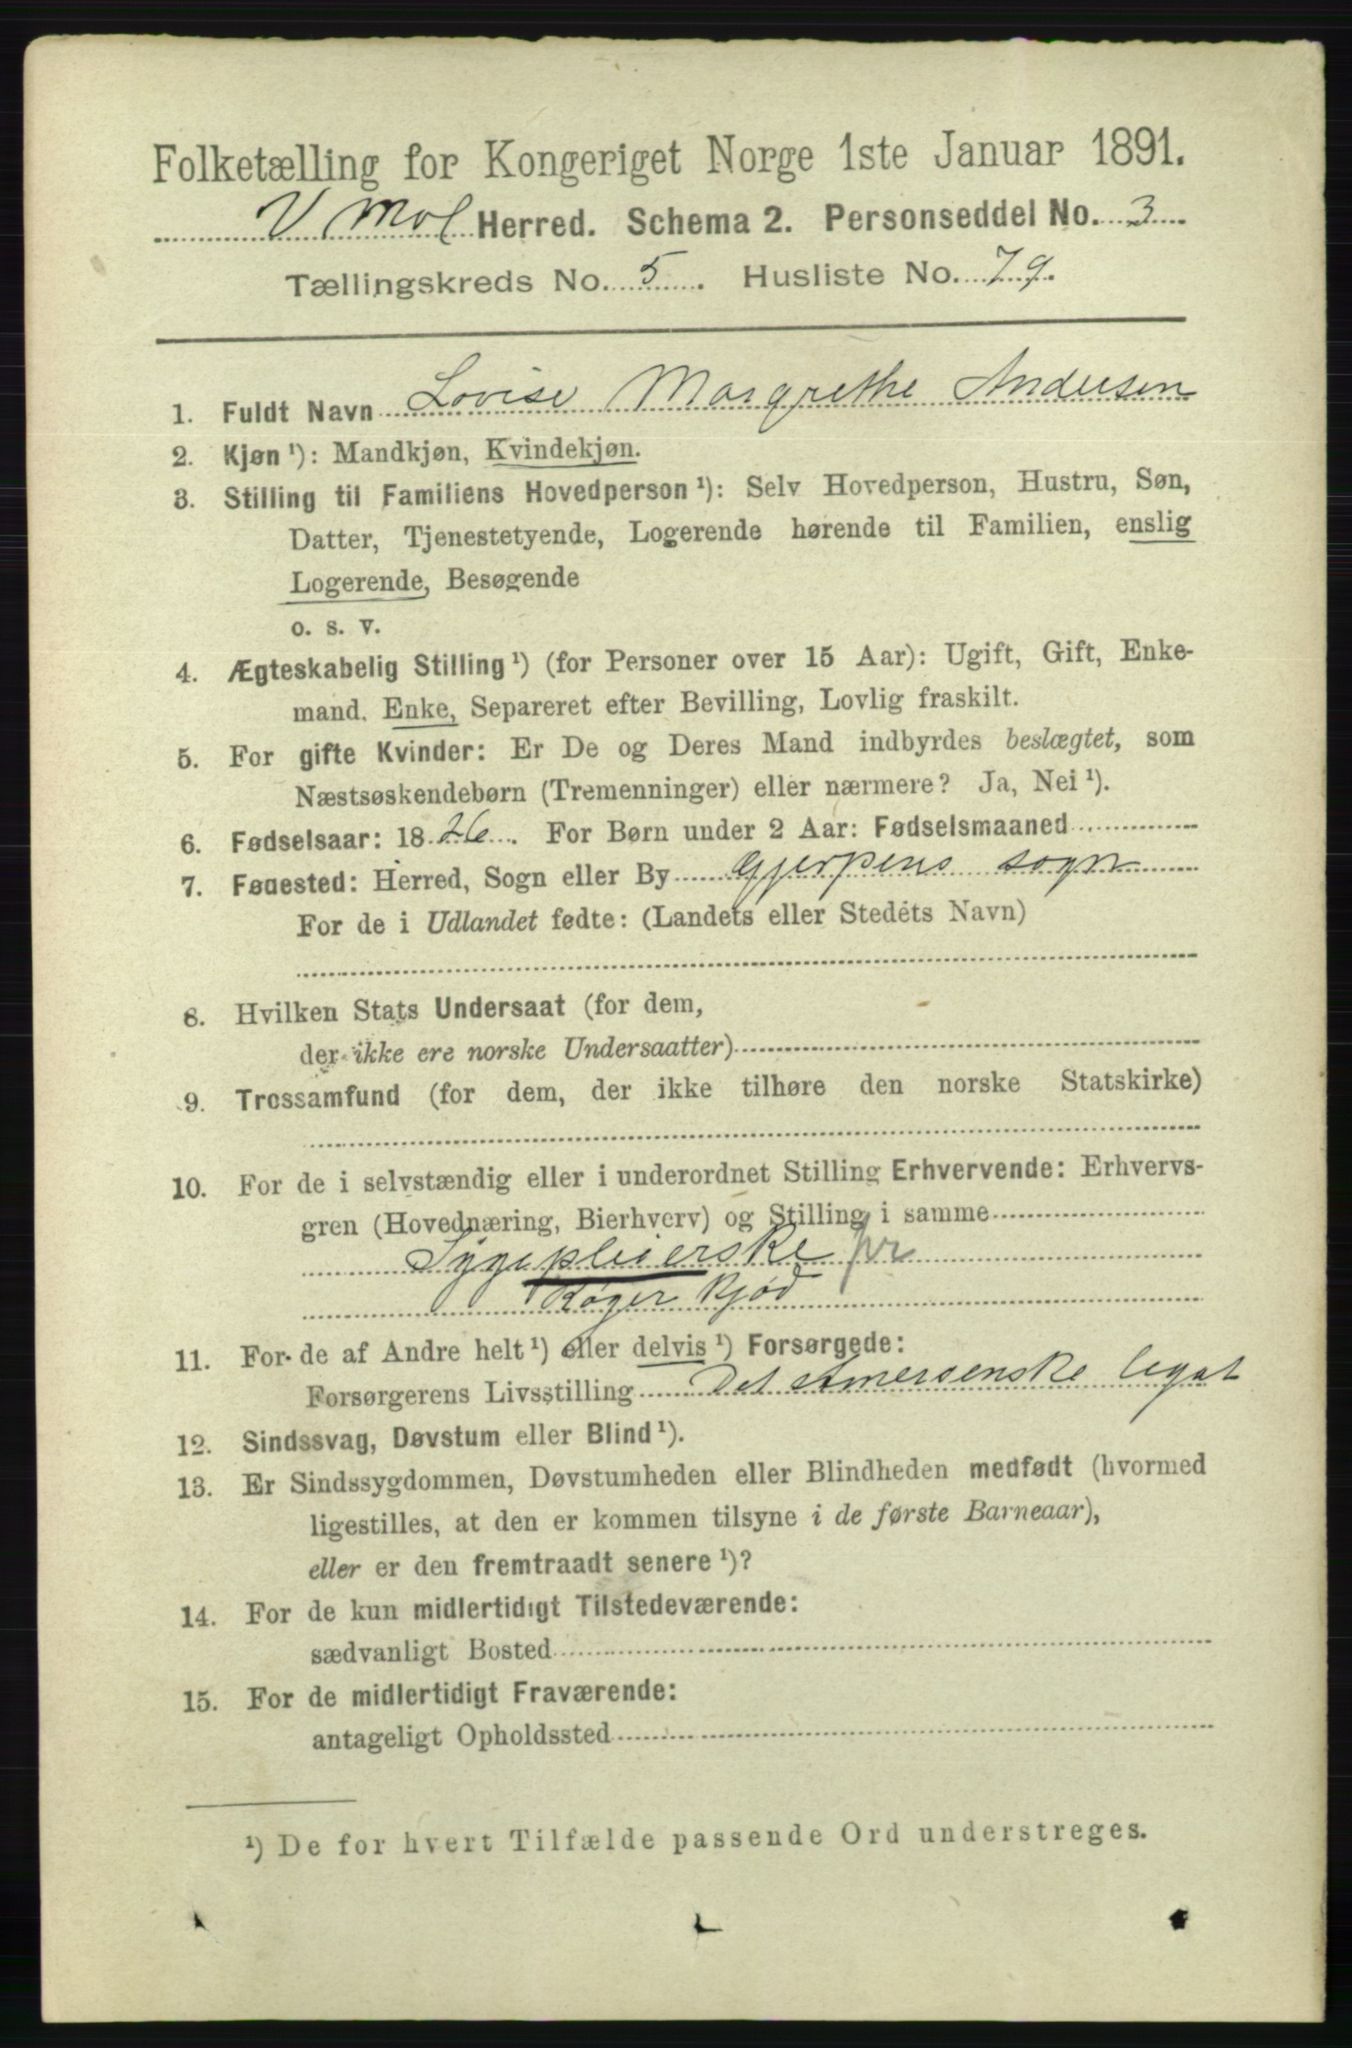 Folketælling for Kongeriget Norge 1ste Januar 1891.
V Mol Herred. Schema 2. Personseddel No. 3
Tællingskreds No. 5. Husliste No. 79.
1. Fuldt Navn Lovise Margrethe Andersen
2. Kjøn ¹): Mandkjøn, Kvindekjøn.
3. Stilling til Familiens Hovedperson ¹): Selv Hovedperson, Hustru, Søn,
Datter, Tjenestetyende, Logerende hørende til Familien, enslig
Logerende, Besøgende
o. s. v.
4. Ægteskabelig Stilling ¹) (for Personer over 15 Aar): Ugift, Gift, Enke-
mand. Enke, Separeret efter Bevilling, Lovlig fraskilt.
5. For gifte Kvinder: Er De og Deres Mand indbyrdes beslægtet, som
Næstsøskendebørn (Tremenninger) eller nærmere? Ja, Nei ¹).
6. Fødselsaar: 1826. For Børn under 2 Aar: Fødselsmaaned
7. Fødested: Herred, Sogn eller By Gjerpens sogn
For de i Udlandet fødte: (Landets eller Stedets Navn)
8. Hvilken Stats Undersaat (for dem,
der ikke ere norske Undersaatter)
9. Trossamfund (for dem, der ikke tilhøre den norske Statskirke)
10. For de i selvstændig eller i underordnet Stilling Erhvervende: Erhvervs-
gren (Hovednæring, Bierhverv) og Stilling i samme
Sygepleierske pr
Røger Kjød
11. For de af Andre helt ¹) eller delvis ¹) Forsørgede:
Forsørgerens Livsstilling Det Amersenske legat
12. Sindssvag, Døvstum eller Blind ¹).
13. Er Sindssygdommen, Døvstumheden eller Blindheden medfødt (hvormed
ligestilles, at den er kommen tilsyne i de første Barneaar),
eller er den fremtraadt senere ¹)?
14. For de kun midlertidigt Tilstedeværende:
sædvanligt Bosted
15. For de midlertidigt Fraværende:
antageligt Opholdssted
¹) De for hvert Tilfælde passende Ord understreges.